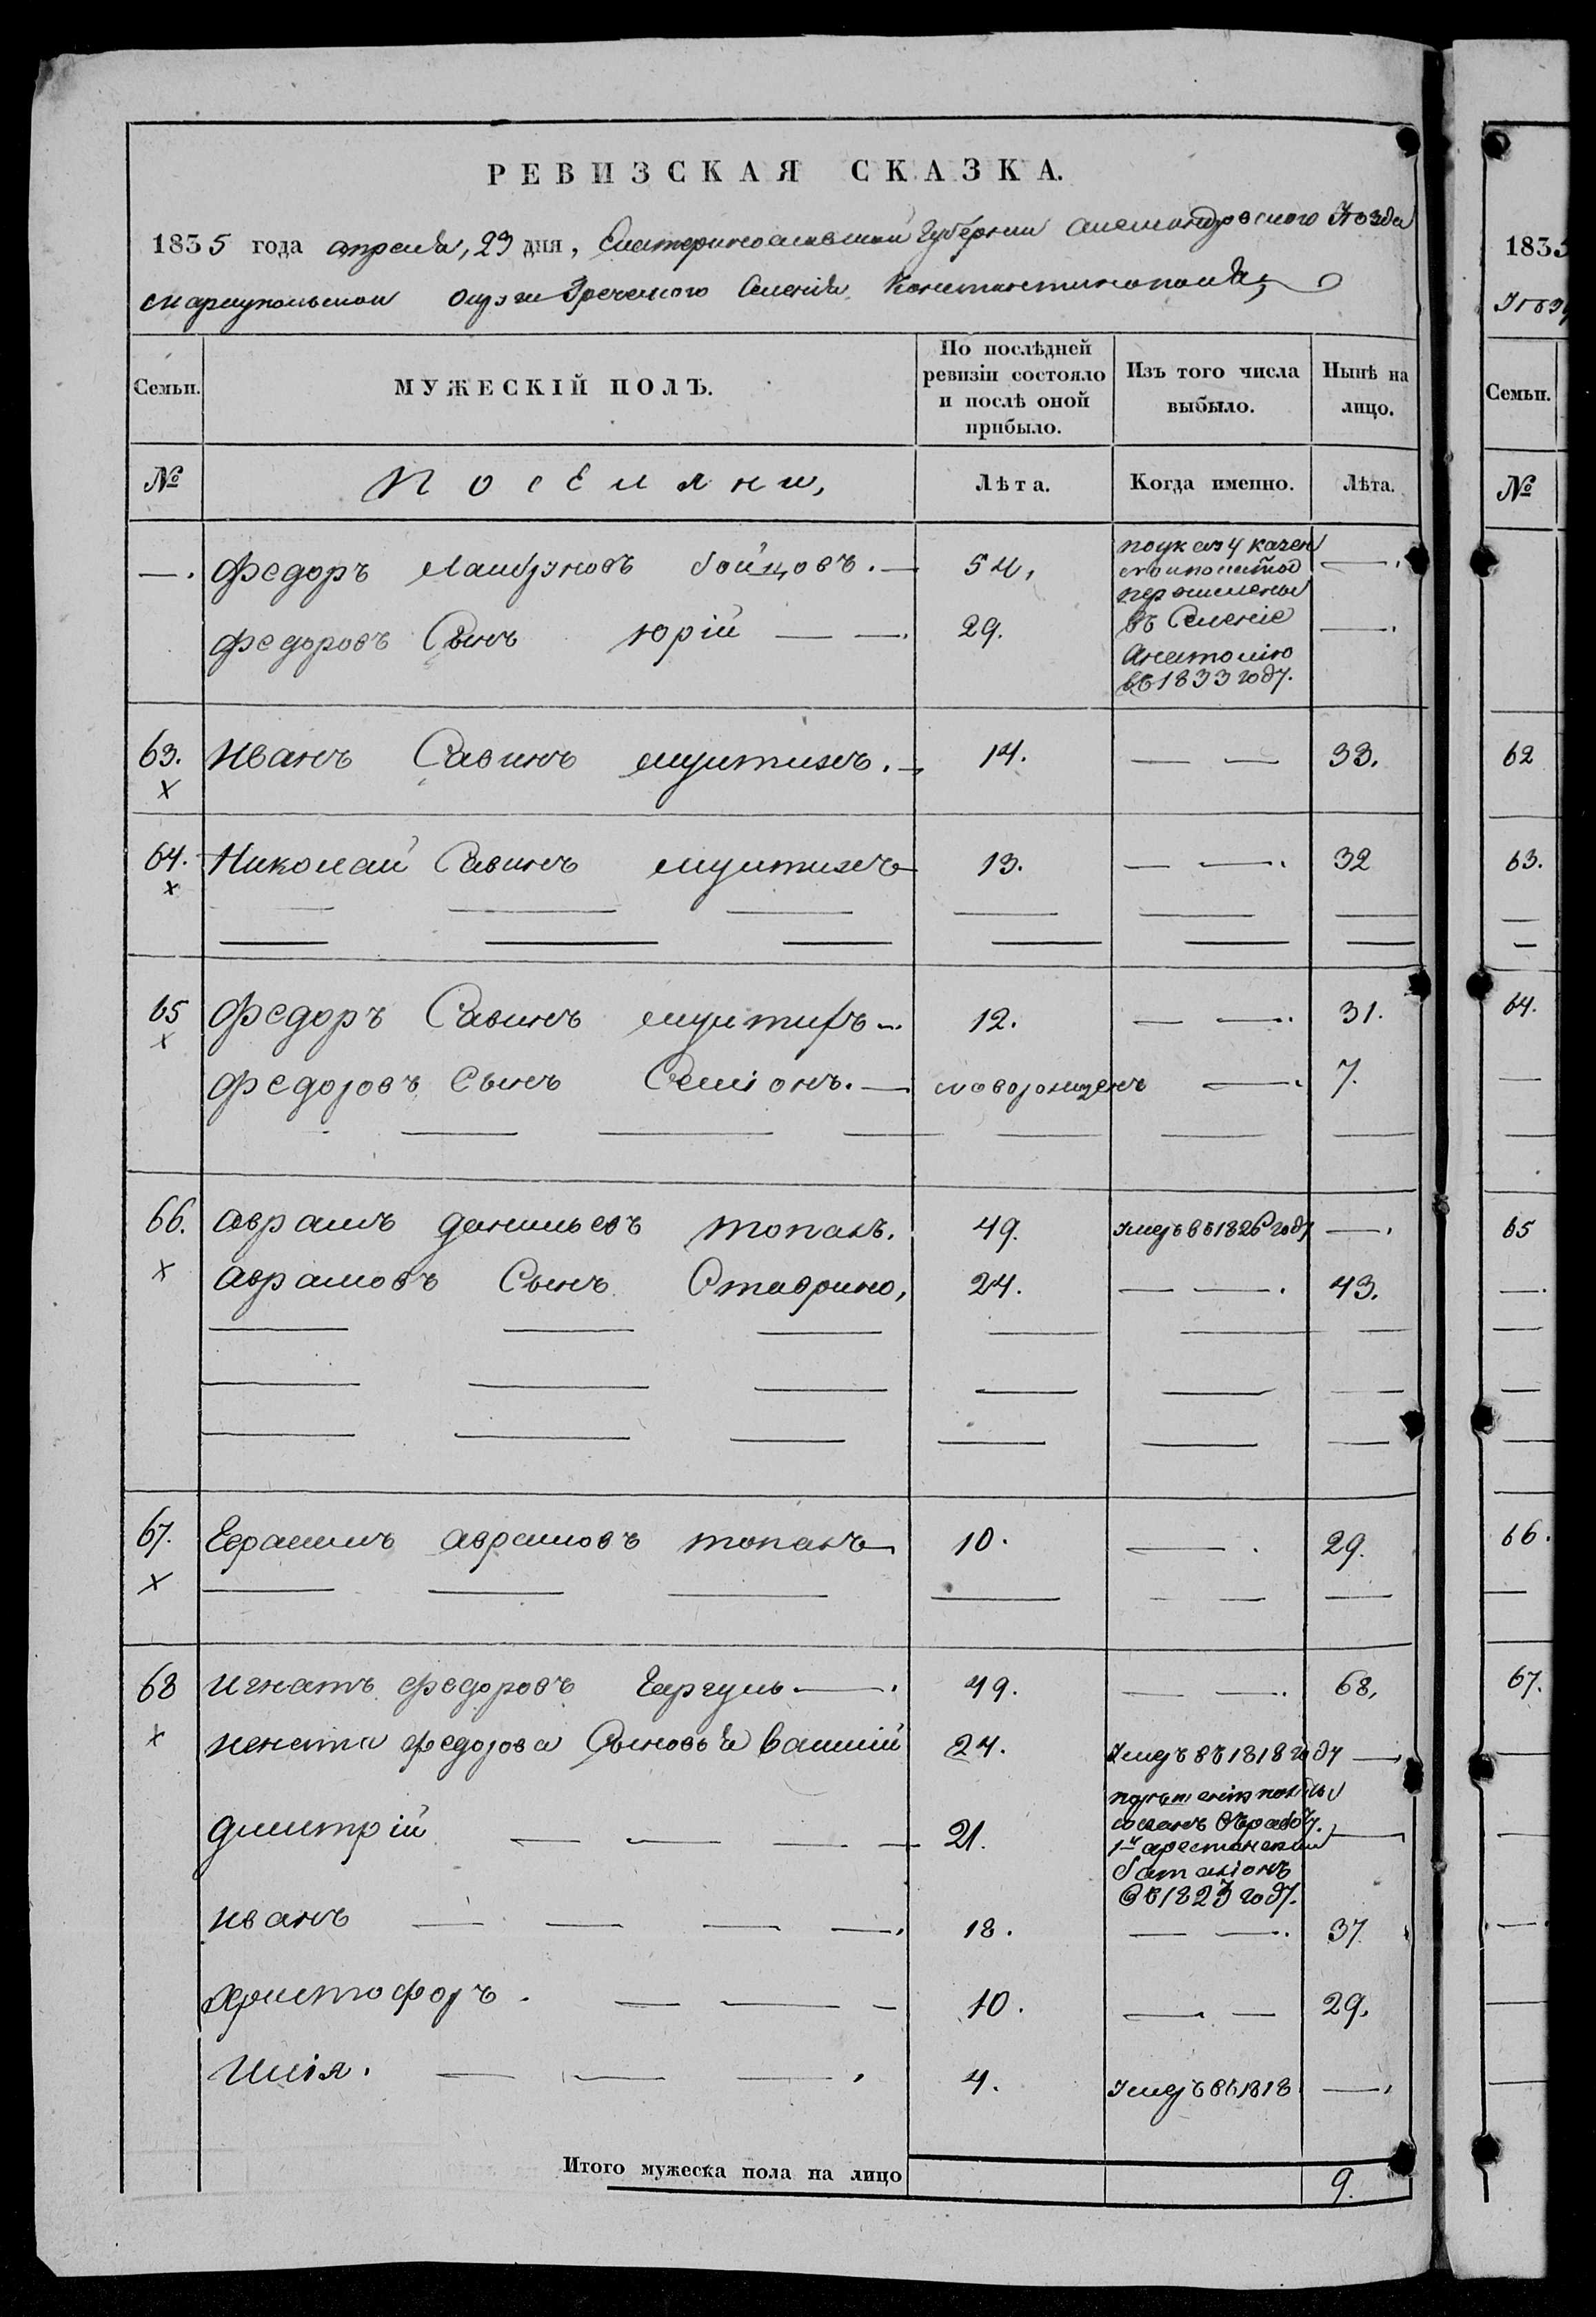 РЕВИЗСКАЯ СКАЗКА.
1835 года апреля, 23 дня, Екатеринославской Губернии Александровского Уезда
Мариупольской округи Греческого Селения Константинополя,
Семьи. МУЖЕСКІЙ ПОЛЪ. По послѣдней ревизіи состояло и послѣ оной прибыло. Изъ того числа выбыло. Нынѣ на лицо.
№ Поселяни, Лѣта. Когда именно. Лѣта.
—. Федоръ бойцовъ. — 54, по указу —.
перечислены
Федоровъ Сынъ Юрій — —. 29. въ Селеніе —.
Анатолію
въ 1833 году.
63. Иванъ Савинъ — 14. — — 33.
х
64. Николай Савинъ 13. — —. 32
х
65 Федоръ Савинъ 12. — —. 31.
х
Федоровъ Сынъ Семіонъ. — новорожденъ —. 7.
66. Аврамъ Данильевъ топалъ. 49. Умеръ въ 1826 году —.
х Аврамовъ Сынъ Ставрино, 24. — —. 43.
67. Аврамовъ топалъ 10. —. 29.
х
68 Игнатъ Федоровъ —. 49. — —. 68,
х Игната Федорова Сыновья Василій 24. Умеръ въ 1818 году —.
Дмитрій — — — — 21. —
1й арестанскій
баталіонъ
въ 1823 году.
Иванъ — — — —. 18. — —. 37.
Христофоръ. — — — 10. — — 29.
Илія. — — —. 4. Умеръ въ 1818 —.
Итого мужеска пола на лицо 9.
1835
Уезд
Семьи.
№
62
63.
64.
65
66.
67.